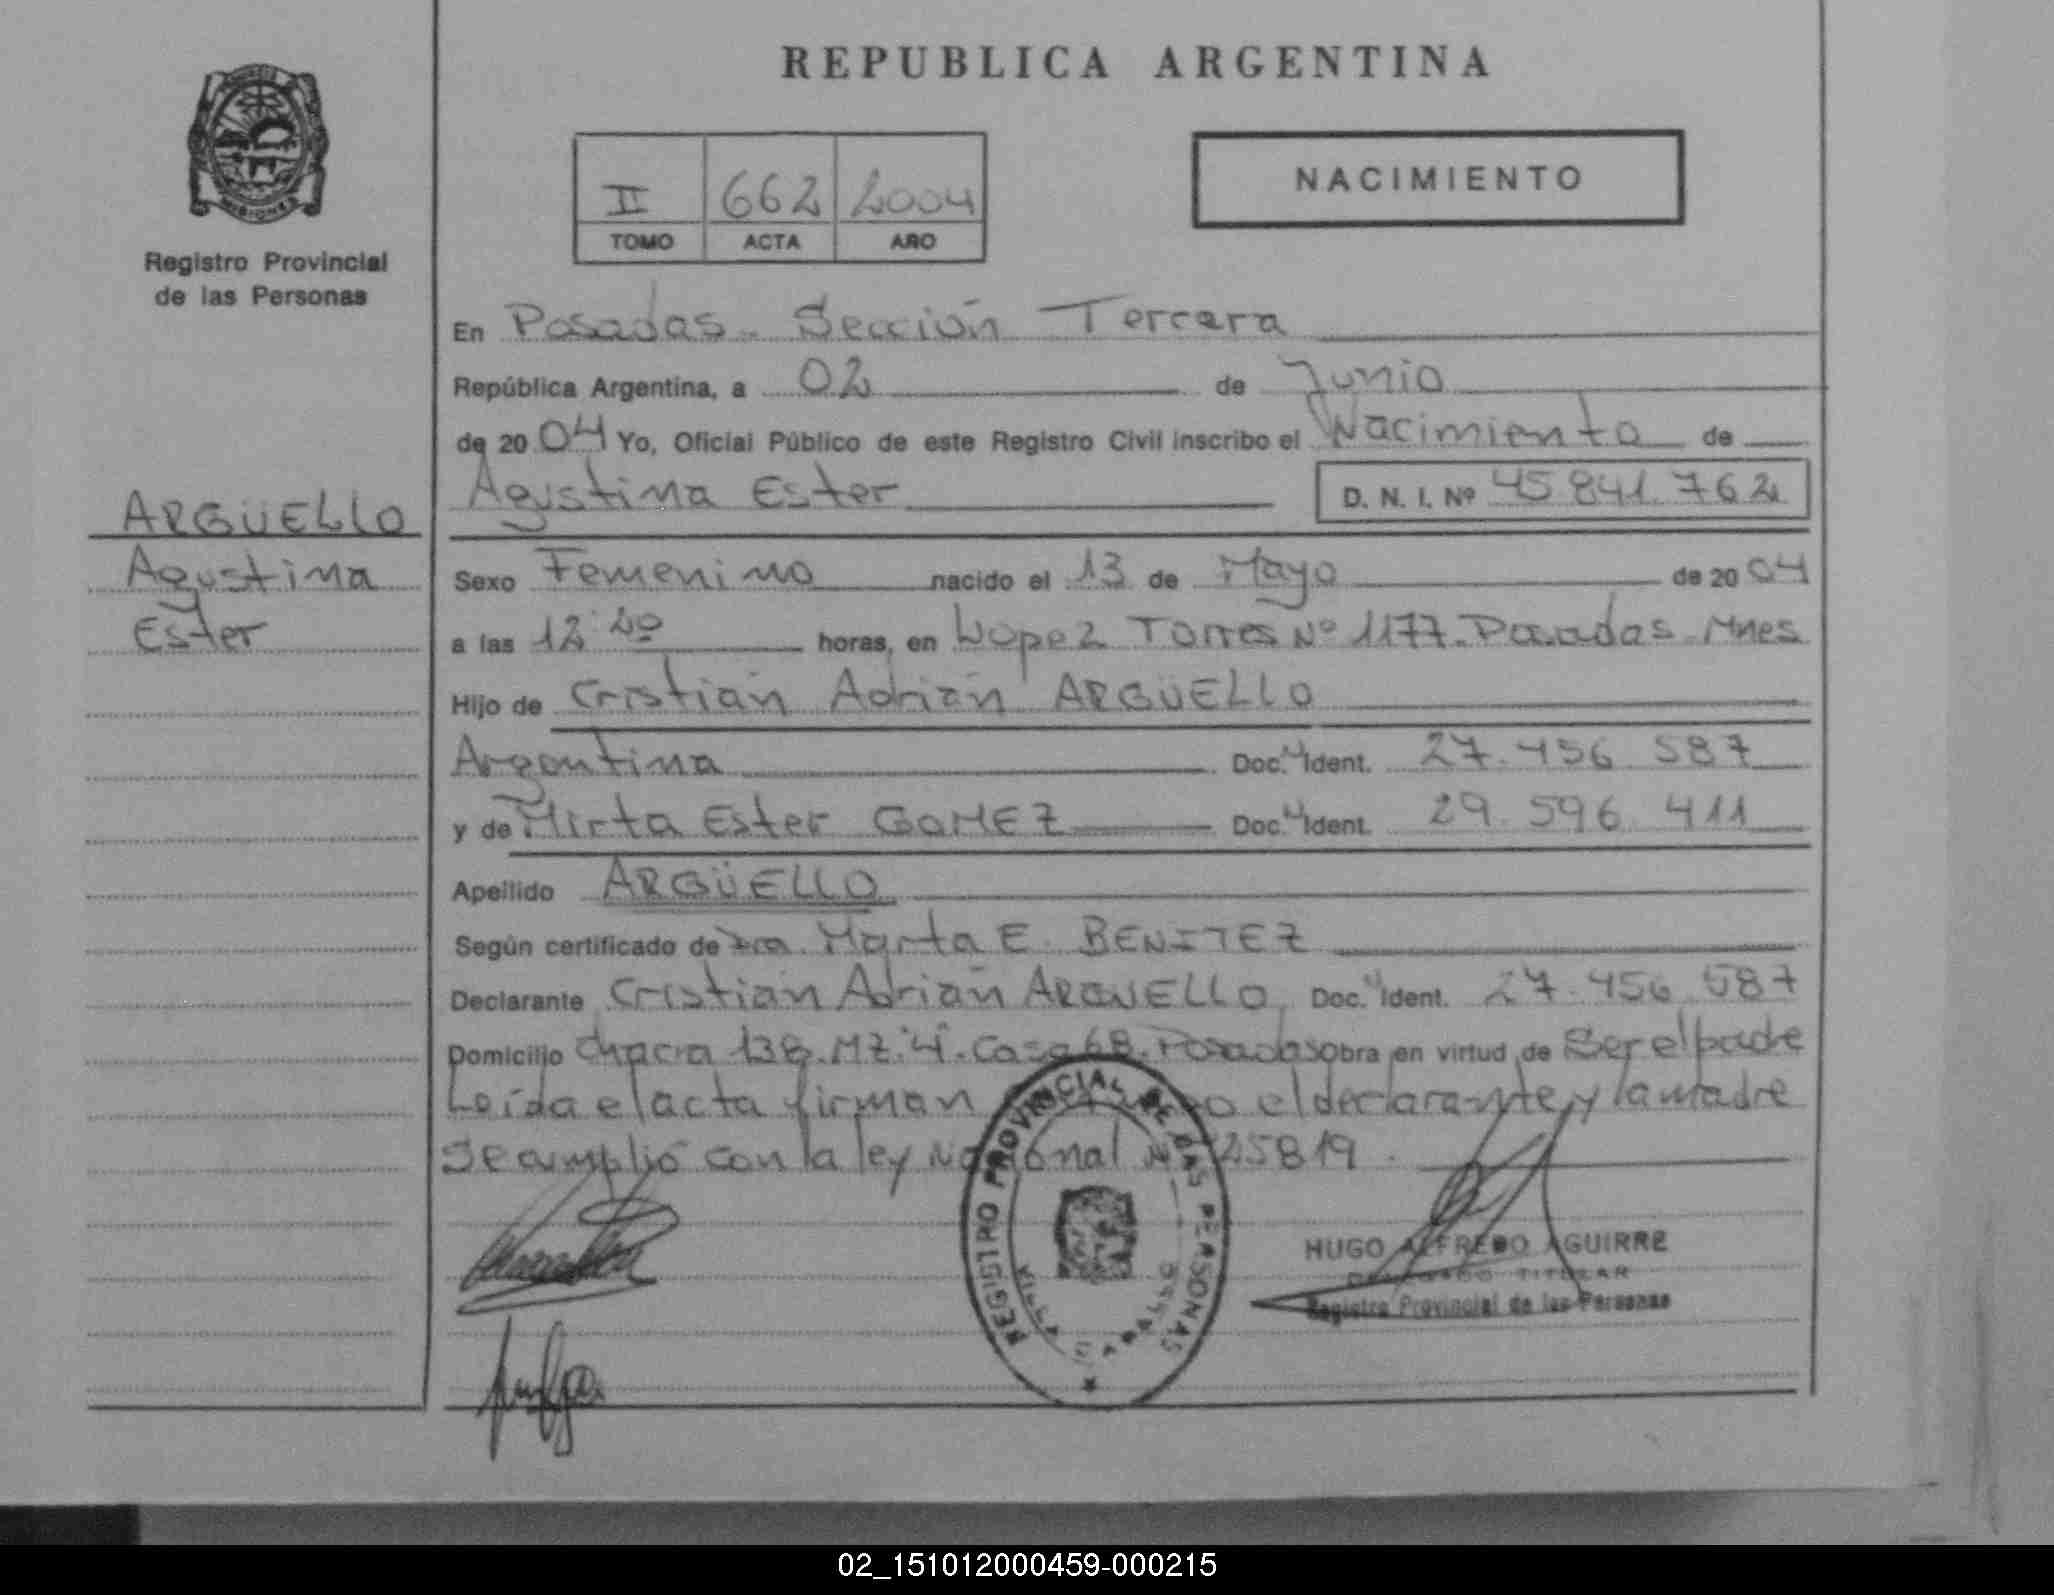 REPUBLICA ARGENTINA
NACIMIENTO
II 662 2004
TOMO ACTA AÑO
MISIONES
Registro Provincial
de las Personas
En Posadas - Sección Tercera
República Argentina, a 02 de Junio
de 2004 Yo, Oficial Público de este Registro Civil inscribo el Nacimiento de
Agustina Ester D. N. I. Nº 45.841.762
ARGÜELLO
Agustina
Ester
Sexo Femenino nacido el 13 de Mayo de 2004
a las 12:20 horas, en Lopez Torres Nº 1177 - Posadas - Mnes
Hijo de Cristian Adrián ARGÜELLO
Argentina Doc. Ident. 27.456.587
y de Mirta Ester GOMEZ Doc. Ident. 29.596.411
Apellido ARGÜELLO
Según certificado de Dra. Marta E. BENITEZ
Declarante Cristian Adrián ARGUELLO Doc. Ident. 27.456.587
Domicilio Chacra 138. MZ. "4". Casa 68. Posadas obra en virtud de Ser el padre
Leída el acta firman el declarante y la madre
Se cumplió con la ley Nacional Nº 25819.
REGISTRO PROVINCIAL DE LAS PERSONAS
HUGO ALFREDO AGUIRRE
DELEGADO TITULAR
Registro Provincial de las Personas
02_151012000459-000215